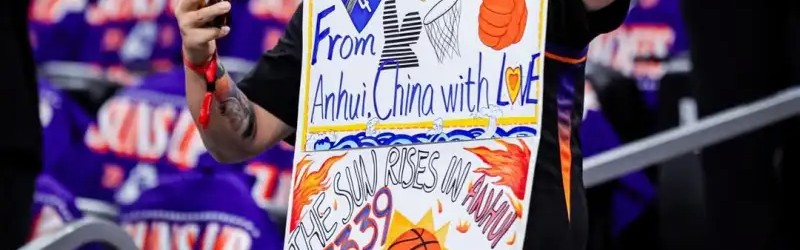 From
Anhui. China with LOVE
THE SUN RISES IN ANHUI
339